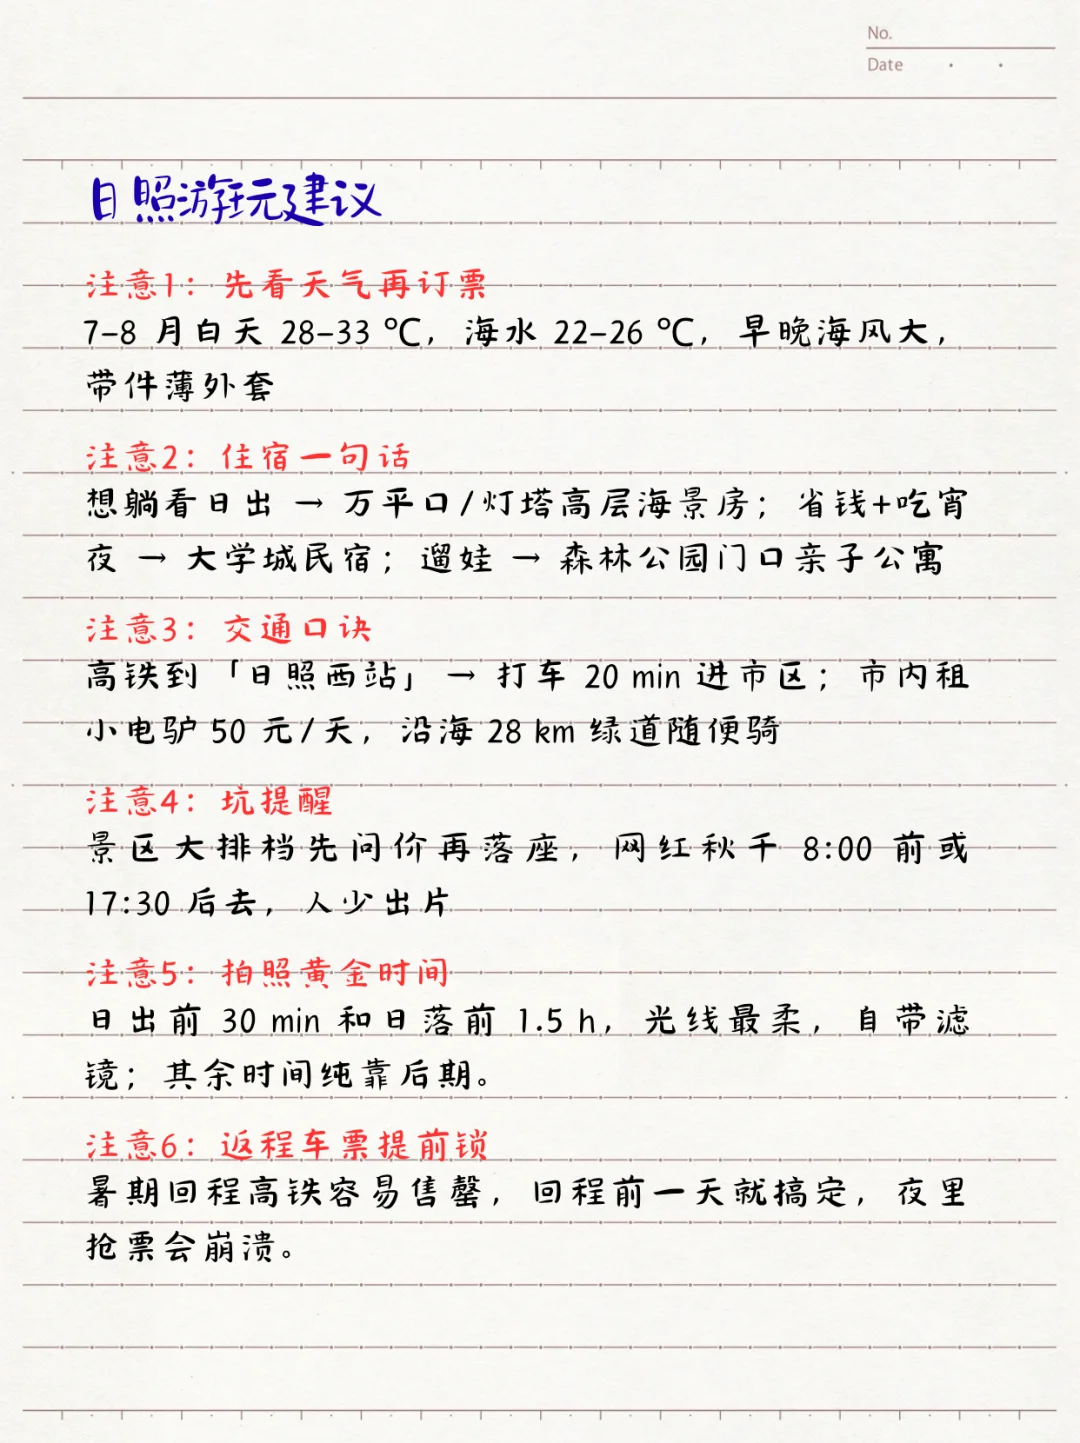 No.
Date
日照游玩建议
注意1：先看天气再订票
7-8 月白天 28-33 ℃，海水 22-26 ℃，早晚海风大，
带件薄外套
注意2：住宿一句话
想躺看日出 → 万平口/灯塔高层海景房；省钱+吃宵
夜 → 大学城民宿；遛娃 → 森林公园门口亲子公寓
注意3：交通口诀
高铁到「日照西站」 → 打车 20 min 进市区；市内租
小电驴 50 元/天，沿海 28 km 绿道随便骑
注意4：坑提醒
景区大排档先问价再落座，网红秋千 8:00 前或
17:30 后去，人少出片
注意5：拍照黄金时间
日出前 30 min 和日落前 1.5 h，光线最柔，自带滤
镜；其余时间纯靠后期。
注意6：返程车票提前锁
暑期回程高铁容易售罄，回程前一天就搞定，夜里
抢票会崩溃。